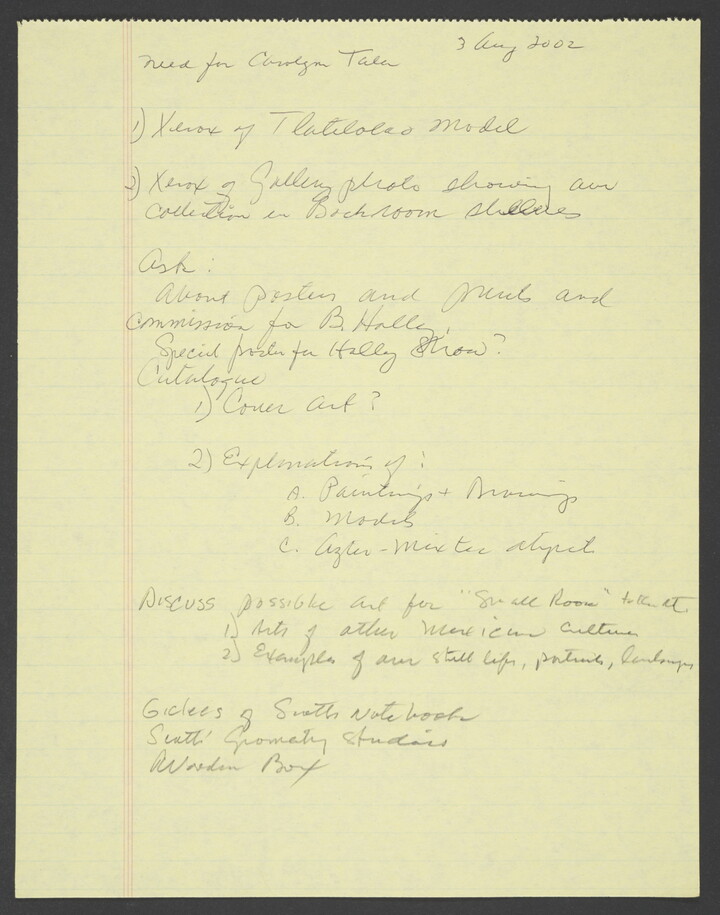 3 Aug 2002
need for Carolyn Tate
1) Xerox of Tlatelolco Model
2) Xerox of Gallery photo showing our
collection in Backroom shelves
Ask:
About posters and prints and
commission for B. Holly.
Special poster for Holly Show?
Catalogue
1) Cover Art?
2) Explanations of:
A. Paintings + Drawings
B. Models
C. Aztec-Mixtec objects
Discuss possible art for "Small Room"
1) Arts of other Mexican Cultures
2) Examples of our still lifes, portraits, landscapes
Giclees of Scotts Notebook
Scotts' Geometry Studies
Wooden Box